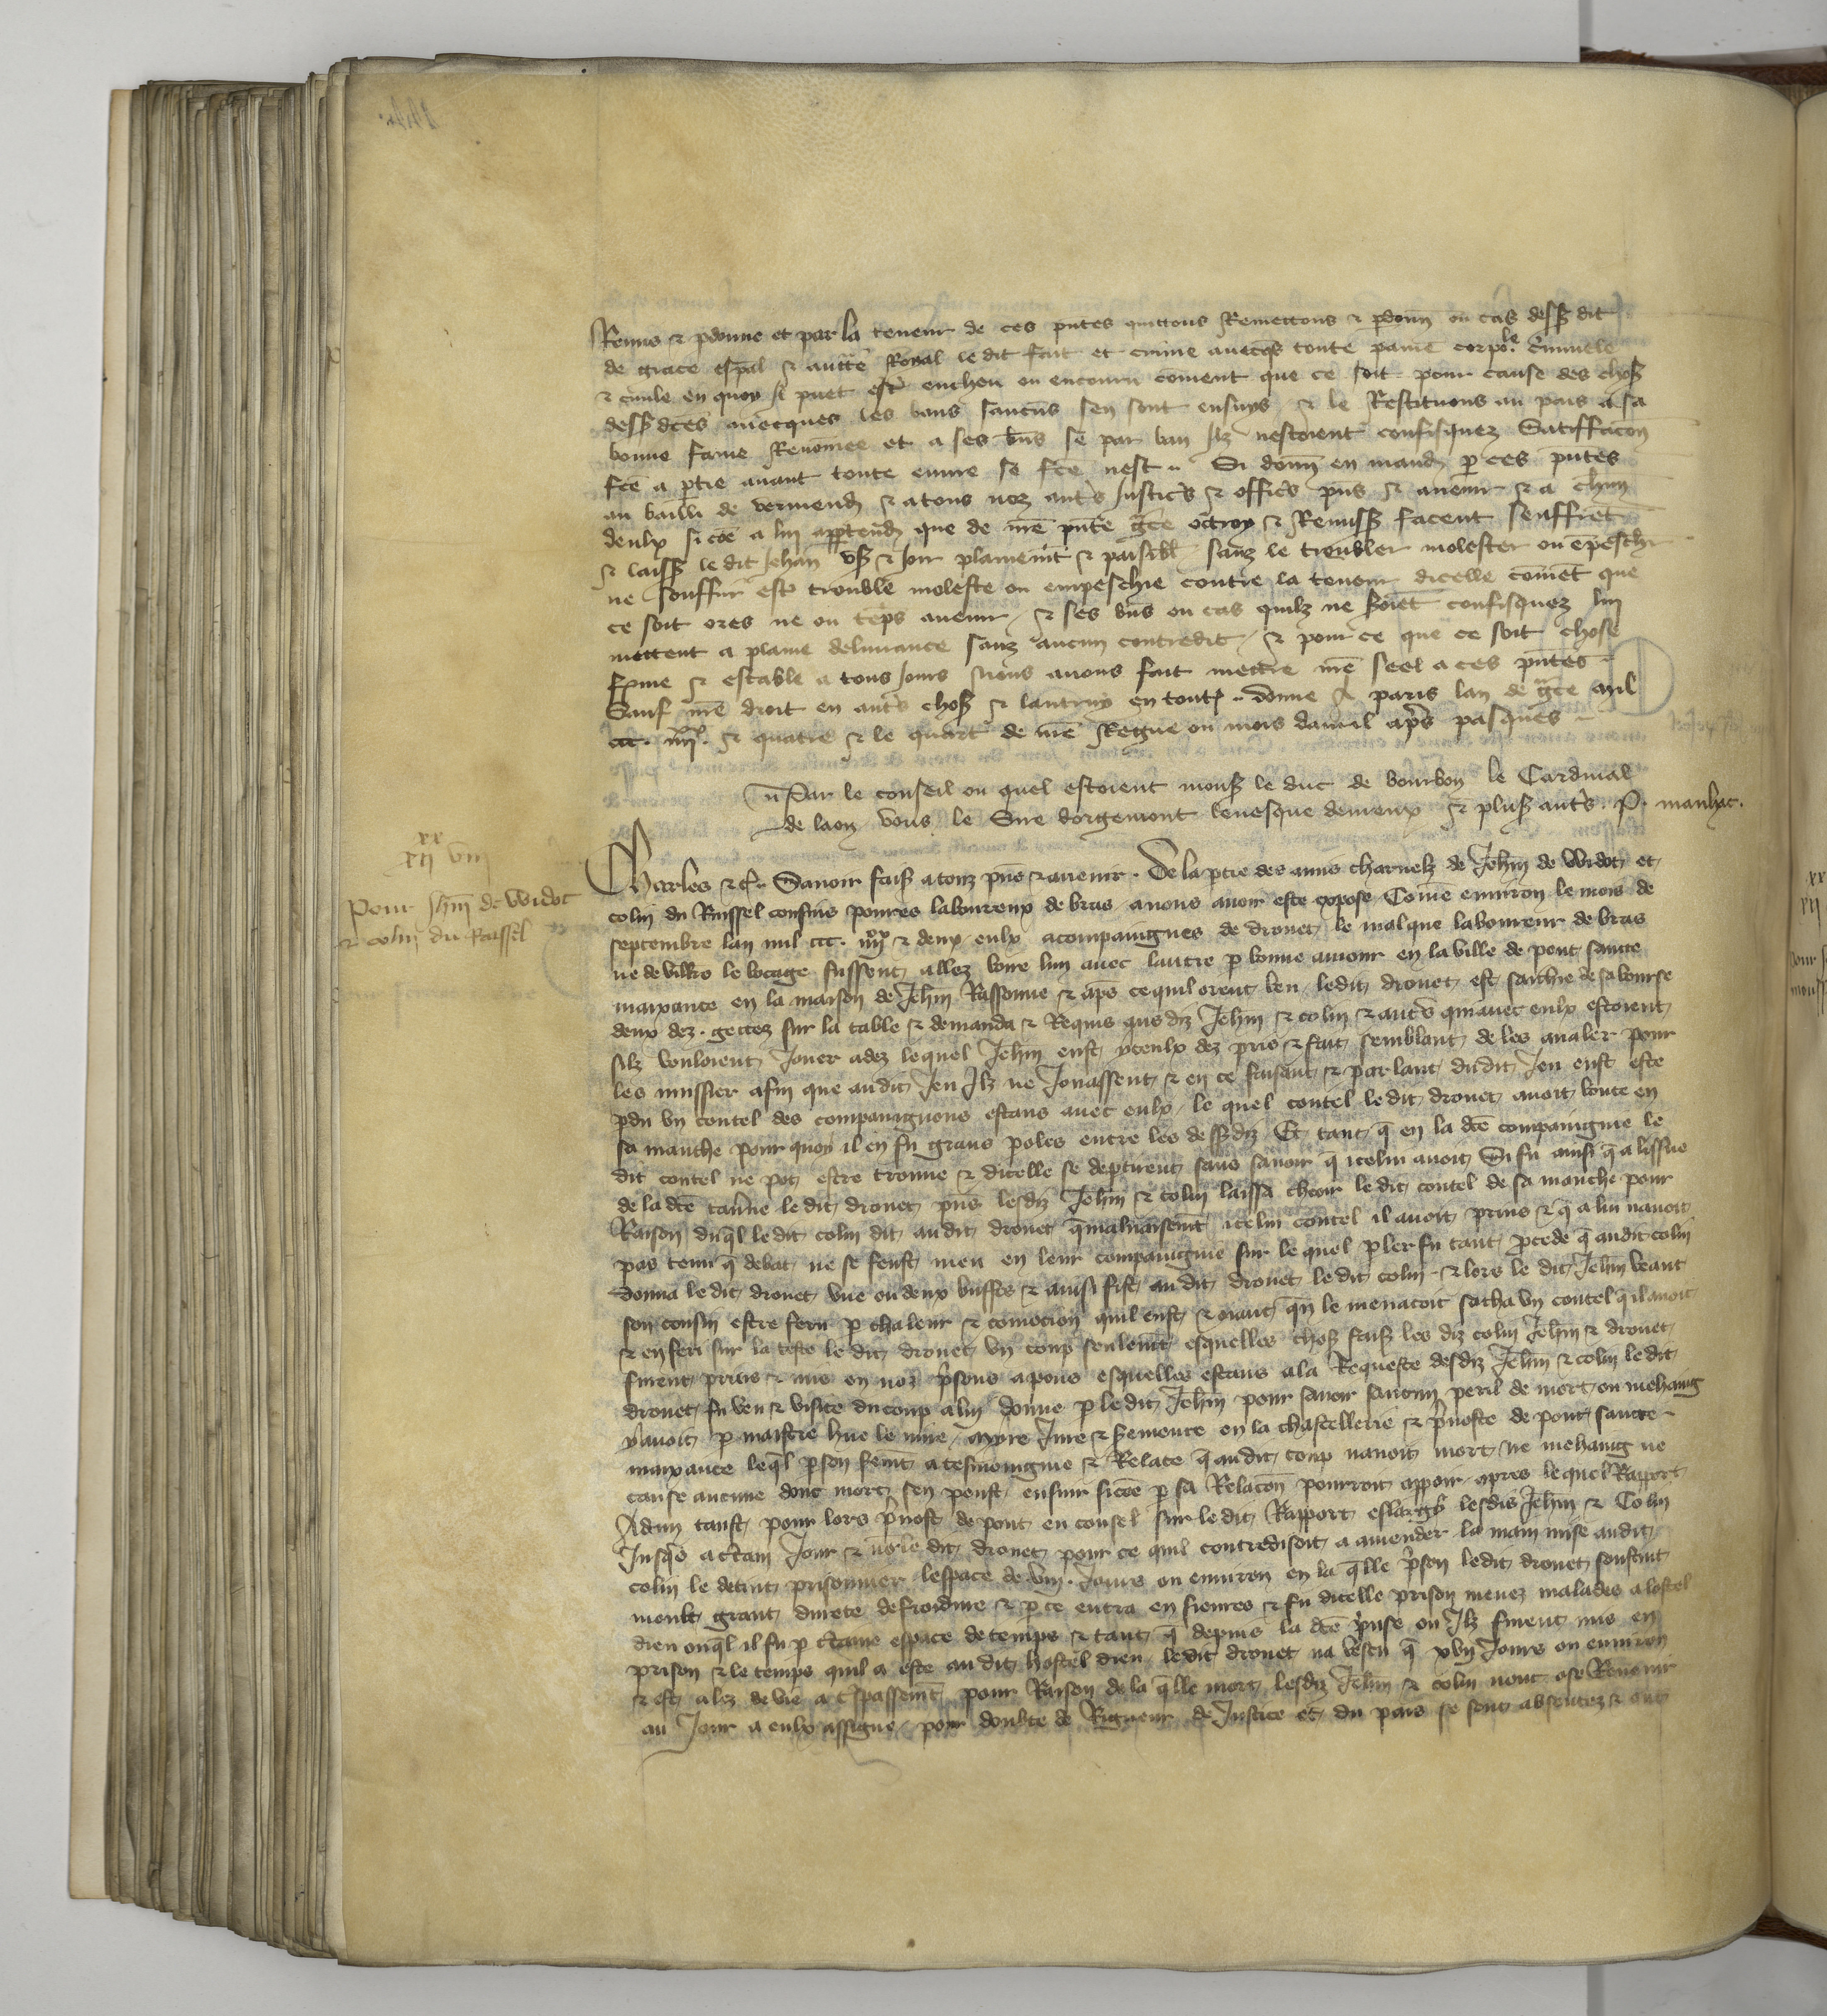 Remis & pdonne et par la teneur de ces pntes quittons Remettons & pdonn ou cas dess dit
de grace espal & auttē Royal le dit fait et crime auecqs toute paine corpole crimiele
& ciuile en quoy il puet estr encheu ou encouru coment que ce soit pour cause des chos
dess dces auecques les bans saucūs sen sont ensuys & le Restituons au pais a sa
bonne fame Renōmee et a ses bns se par ban ilz nestoient confisquez Satiffacon
fce a ptie auant toute euure se fce nest Si donn en mand p ces pntes
au bailli de vermend & a tous noz autrs Justicrs & officrs pns & auenir & a chun
deulx si cōe a lui apptend que de nre pnte gce octroy & Remiss facent seuffrēt
& laiss le dit Jehan vs & Joir plainemt & paisibl sanz le troubler molester ou epeschr
ne souffrir estr trouble moleste ou empeschie contre la teneur dicelle comēt que
ce soit ores ne ou teps auenir & ses bns ou cas quilz ne soiēt confisquez lui
mettent a plaine deliurance sanz aucun contredit & pour ce que ce soit chose
ferme & estable a tous Jours Nous auons fait mettre nre seel a ces pntes
Sauf nre droit en autrs chos & lautruy en toutes donne A paris lan de gce mil
ccc. iiijxx & quatre & le quart de nre Regne ou mois dauril aprs pasques
Par le conseil ou quel estoient mons le duc de bourbon le Cardinal
de laon vous le Sire dorgemont leuesque demeux & plus autrs. P. manhac.
xx
vii viij
Pour Jhn de Widot
& colin du Russel
Charles &c. Sauoir fais a touz pns & auenir. De la ptie des amis charnelz de Jehn de Widot et
colin du Russel cousins poures laboureux de bras auons auoir este expose Come enuiron le mois de
septembre lan mil ccc. iiijxx & deux eulx acompaingnes de drouet le malque laboureur de bras
ne de villrs le bocage fussent allez boire lun auec lautre p bonne amour en la ville de pont saincte
maixance en la maison de Jehn Rassonne & aps ce quil orent beu ledit drouet est sachie de sa bourse
deux dez gettez sur la table & demanda & Requis aus diz Jehn & colin & autrs qui auec eulx estoient
silz vouloient Jouer adez lequel Jehn eust yceulx dez pris & fait semblant de les aualer pour
les mussier afin que audit Jeu Ilz ne Jouassent & en ce faisant & parlant dudit Jeu eust este
pdu vn coutel des compaignons estans auec eulx le quel coutel le dit drouet auoit boute en
sa manche pour quoy il en fu grans poles entre les dess diz Et tant q en la dce compaingnie le
dit coutel ne pot estre trouue & dicelle se deptirent sans sauoir q icelui auoit Si fu ainsi q a lissue
de la dce tauerne le dit drouet pns lesdiz Jehn & colin laissa cheoir le dit coutel de sa manche pour
Raison duql le dit colin dit audit drouet q mauuaisemt icelui coutel il auoit prins & q a lui nauoit
pas tenu q debat ne se feust meu en leur compaingnie sur le quel pler fu tant procede q audit colin
donna le dit drouet vne ou deux buffes & ainsi fist au dit drouet le dit colin & lors le dit Jehn veant
son cousin estre feru p chaleur & comocion quil eust & ouant qn le menacoit sacha vn coutel q il auoit
& en feri sur la teste le dit drouet vn coup seulemt esquelles chos fais les diz colin Jehn & drouet
furent prins & mis en noz prisons a pons esquelles estans ala Requeste desdiz Jehn & colin le dit
drouet fu veu & visite du coup a lui donne p le dit Jehn pour sauoir saucun peril de mort ou mehaing
yauoit p maistre hue le mire Jure & sermente en la chastellerie & preuoste de pont saincte
maixance leql p son sermt a tesmoingnie & Relate q audit coup nauoit mort ne mehaing ne
cause aucune dont mort sen peust ensuir sicōe p sa Relacon pourroit apparoir apres lequel Rapport
Adam tanst pour lors preuost de pont eu conseil sur le dit Rapport eslargy lesdis Jehn & Colin
Jusqs a certain Jour & ledit drouet pour ce quil contredisoit a amender la main mise audit
colin le detint prisonnier lespace de viij. Jours ou enuiron en la qlle prison ledit drouet soustint
moult grant durete de froidure & p ce entra en fieures & fu dicelle prison menez malades a lostel
dieu ouql il fu p ctaine espace de temps & tant q depuis la dce prinse ou Ilz furent mis en
prison & le temps quil a este au dit hostel dieu ledit drouet na vescu q xvij Jours ou enuiron
& est alez de vie a trespassemt pour Raison de la qlle mort lesdiz Jehn & colin nont ose Reuenir
au Jour a eulx assigne pour doubte de Rigueur de Justice et du pais se sont absentez & ont